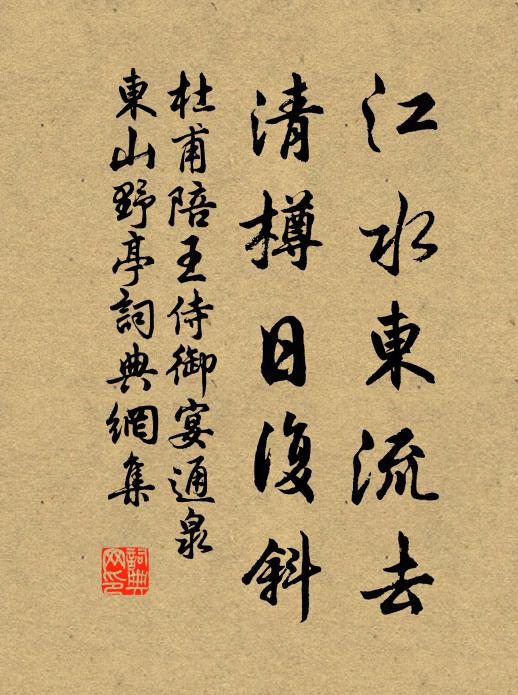 江水東流去
清樽日復斜
杜甫陪王侍御宴通泉
東山野亭詞典網集
詞典網印